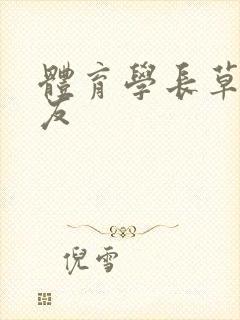 體育學長草
友
倪雪